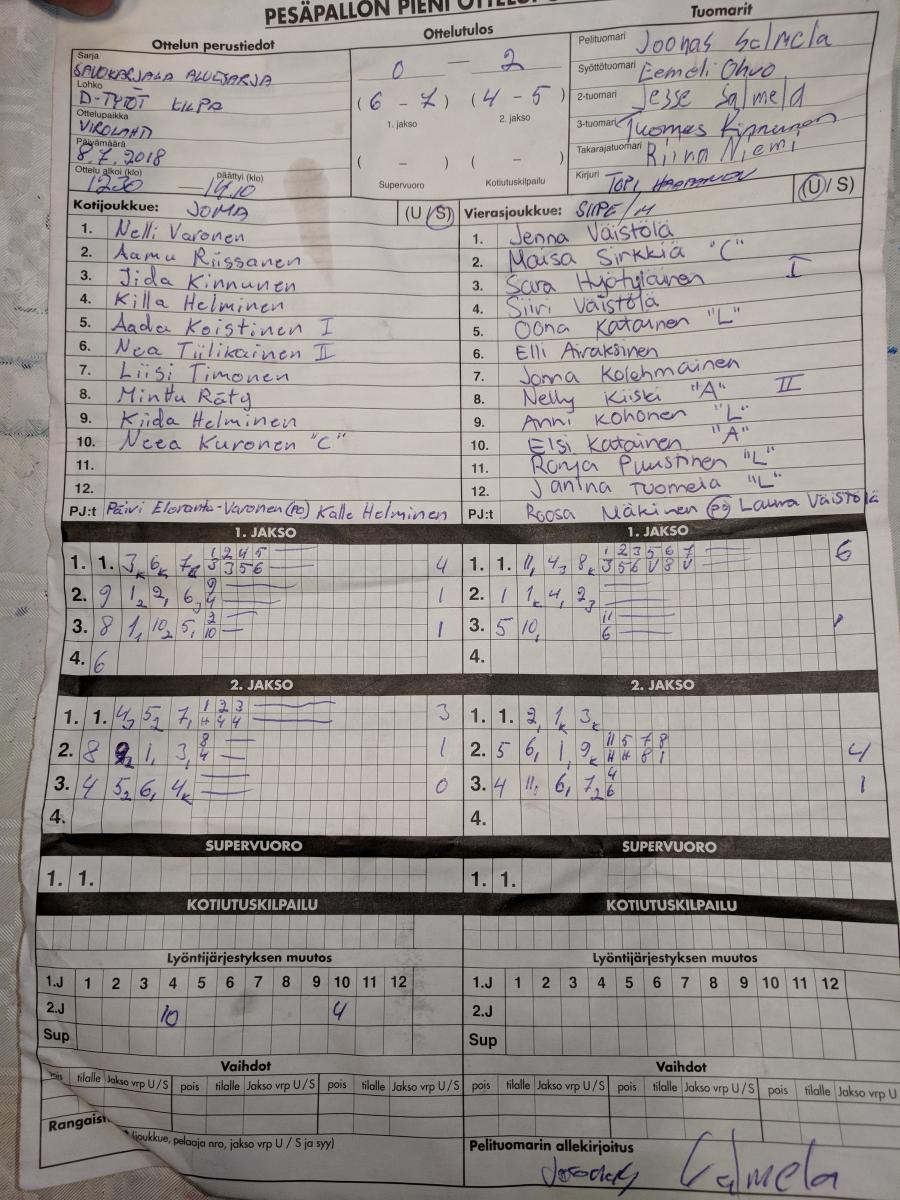 PESÄPALLON PIENI
Ottelun perustiedot
Ottelutulos
Tuomarit
Sarja
SAVOKARJALA ALUESARJA
Lohko
D-TYTÖT KILPA
Ottelupaikka
VIROLAHTI
Päivämäärä
8.7.2018
Ottelu alkoi (klo) päättyi (klo)
1230 — 1410
0 — 2
(6 - 7) (4 - 5)
1. jakso 2. jakso
( - ) ( - )
Supervuoro Kotiutuskilpailu
Pelituomari Joonas Salmela
Syöttötuomari Eemeli Ohvo
2-tuomari Jesse Salmela
3-tuomari Tuomas Kinnunen
Takarajatuomari Riina Niemi
Kirjuri TOPI
Kotijoukkue: JOMA (U / S)
1. Nelli Varonen
2. Aamu Riissanen
3. Iida Kinnunen
4. Killa Helminen
5. Aada Koistinen I
6. Nea Tiilikainen II
7. Liisi Timonen
8. Minttu Räty
9. Kiida Helminen
10. Neea Kuronen "C"
11.
12.
PJ:t Päivi Eloranta-Varonen (PO) Kalle Helminen
Vierasjoukkue: SIIPE/M (U / S)
1. Jenna Väistölä
2. Maisa Sirkkiä "C"
3. Sara Hyötyläinen I
4. Siiri Väistölä
5. Oona Katainen "L"
6. Elli Airaksinen
7. Jonna Kolehmainen
8. Nelly Kiiski "A" II
9. Anni Kohonen "L"
10. Elsi Katainen "A"
11. Ronja Puustinen "L"
12. Janina Tuomela "L"
PJ:t Roosa Mäkinen (PO) Laura Väistölä
1. JAKSO
1. 1. 3K 6K 7K 1 2 4 5 4
3 3 5 6
2. 9 1 2 2 1 6 3 9 1
4
3. 8 1 1 10 2 5 1 2 1
10
4. 6
1. JAKSO
1. 1. 11 4 3 8K 1 2 3 5 6 7 6
3 5 6 U 8 U
2. 1 1K 4 2 3
3. 5 10 11 1
6
4.
2. JAKSO
1. 1. 4 3 5 2 7 1 1 2 3 3
H 4 4
2. 8 9 2 1 1 3 1 8 1
4
3. 4 5 2 6 1 4K 0
4.
2. JAKSO
1. 1. 2 1 1K 3K
2. 5 6 1 1 1 9K 11 5 7 8 4
H H 8 1
3. 4 11 6 1 7 2 4 1
6
4.
SUPERVUORO
1. 1.
SUPERVUORO
1. 1.
KOTIUTUSKILPAILU
KOTIUTUSKILPAILU
Lyöntijärjestyksen muutos
1.J 1 2 3 4 5 6 7 8 9 10 11 12
2.J 10 4
Sup
Lyöntijärjestyksen muutos
1.J 1 2 3 4 5 6 7 8 9 10 11 12
2.J
Sup
Vaihdot
pois tilalle Jakso vrp U / S pois tilalle Jakso vrp U / S pois tilalle Jakso vrp U / S
Vaihdot
pois tilalle Jakso vrp U / S pois tilalle Jakso vrp U / S pois tilalle Jakso vrp U
joukkue, pelaaja nro, jakso vrp U / S ja syy)
Pelituomarin allekirjoitus
Salmela